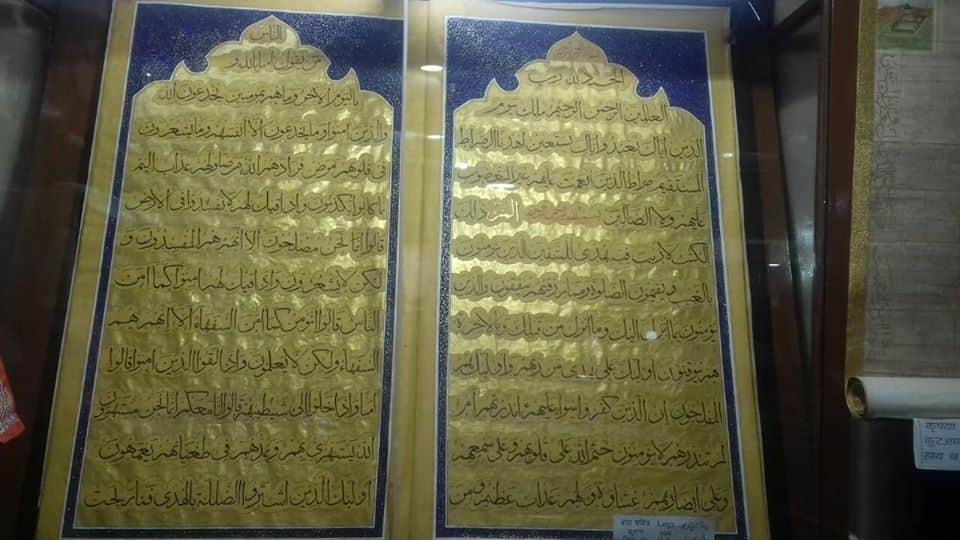 الحمد لله رب
العلمين الرحمن الرحيم ملك يوم
الدين اياك نعبد واياك نستعين اهدنا الصراط
المستقيم صراط الذين انعمت عليهم غير المغضوب
عليهم ولا الضالين الم ذلك
الكتب لاريب فيه هدى للمتقين الذين يومنون
بالغيب ويقيمون الصلوة ومما رزقنهم ينفقون والذين
يؤمنون بما انزل اليك وما انزل من قبلك وبالاخرة
هم يوقنون اولئك على هدى من ربهم واولئك هم
المفلحون ان الذين كفروا سواء عليهم ءانذرتهم ام
لم تنذرهم لا يومنون ختم الله على قلوبهم وعلى سمعهم
وعلى ابصارهم غشاوة ولهم عذاب عظيم ومن
الناس
من يقول امنا بالله و
باليوم الاخر وما هم بمومنين يخدعون الله
والذين امنوا وما يخدعون الا انفسهم وما يشعرون
في قلوبهم مرض فزادهم الله مرضا ولهم عذاب اليم
بما كانوا يكذبون واذا قيل لهم لا تفسدوا في الارض
قالوا انما نحن مصلحون الا انهم هم المفسدون و
لكن لا يشعرون واذا قيل لهم امنوا كما امن
الناس قالوا انومن كما امن السفهاء الا انهم هم
السفهاء ولكن لا يعلمون واذا لقوا الذين امنوا قالوا
امنا واذا خلوا الى شيطينهم قالوا انا معكم انما نحن مستهزون
الله يستهزي بهم ويمدهم في طغيانهم يعمهون
اولئك الذين اشتروا الضللة بالهدى فما ربحت
कृपया
हाथ न